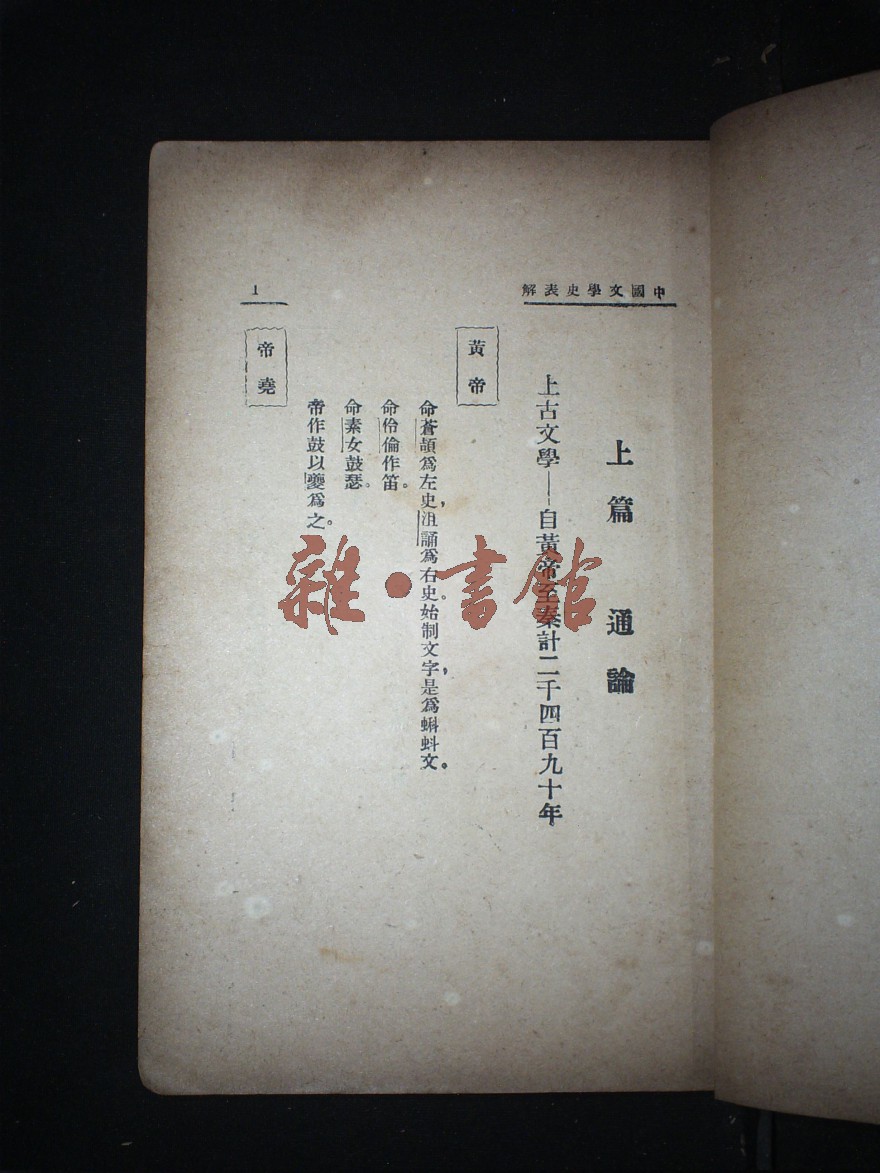 中國文學史表解
上篇 通論
上古文學——自黃帝至秦計二千四百九十年
黃帝
命蒼頡爲左史，沮誦爲右史。始制文字，是爲蝌蚪文。
命伶倫作笛。
命素女鼓瑟。
帝作鼓以夔爲之。
帝堯
1
雜·書館